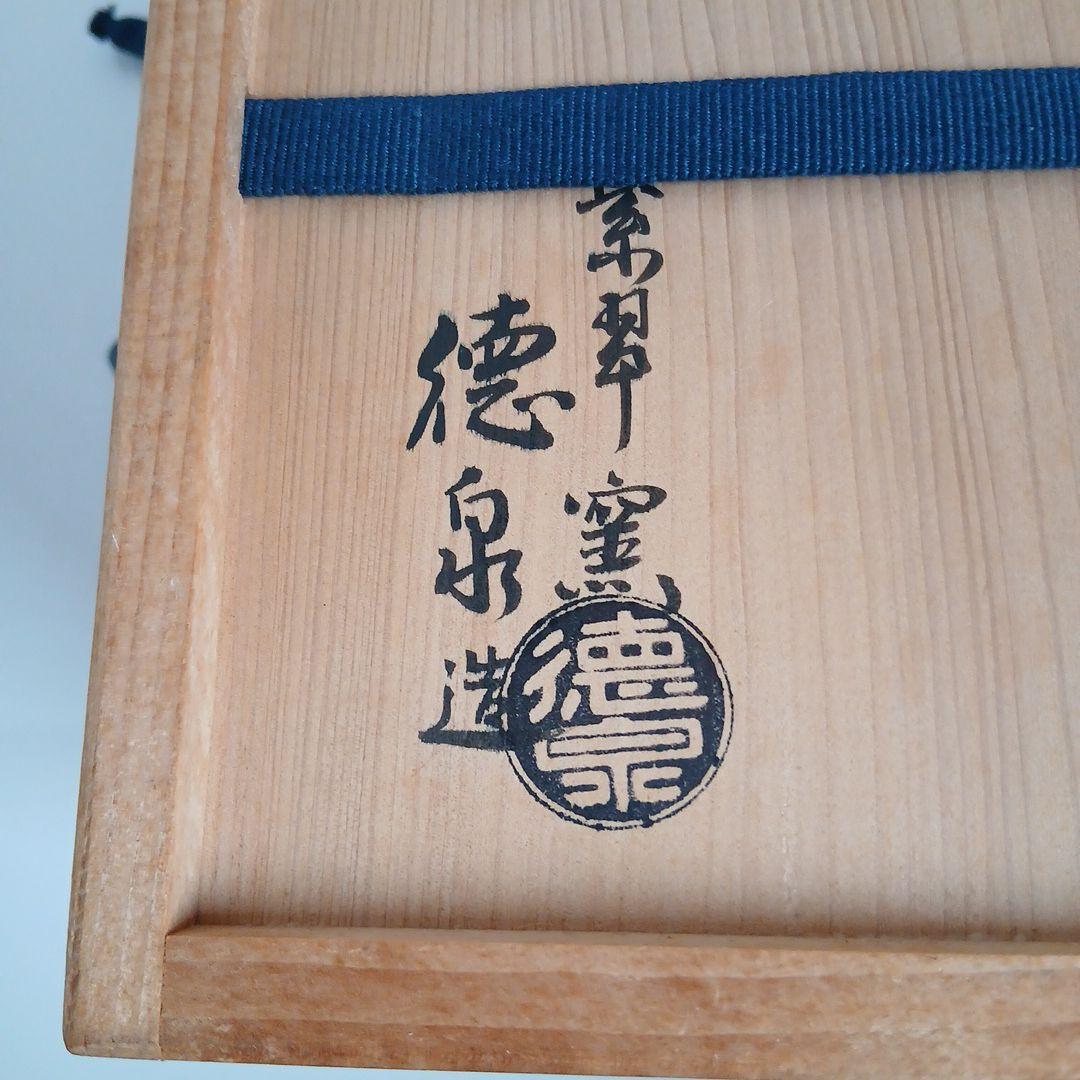 紫翠窯
德泉造
德泉